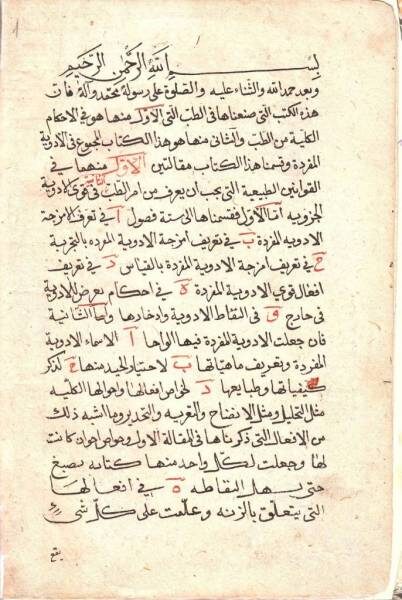 بسم الله الرحمن الرحيم
وبعد حمد الله والثناء عليه والصلوة على رسوله محمد وآله فان
هذه الكتب التى صنعناها فى الطب التى الاول منها هو فى الاحكام
الكلية من الطب والثانى منها هو هذا الكتاب المجموع فى الادوية
المفردة وقسمنا هذا الكتاب مقالتين الاولى منهما فى
القوانين الطبيعية التى يجب ان يعرف من امر الطب فى قوى الادوية
الجزويه اما الاول فقسمناها الى ستة فصول ا فى تعرف امزجة
الادويه المفردة ب فى تعريف امزجة الادوية المفرده بالتجربة
ج فى تعريف امزجة الادوية المفردة بالقياس د فى تعريف
افعال قوي الادوية المفردة ه فى احكام يعرض للادوية
فى خارج و فى التقاط الادوية وادخارها واما الثانية
فان جعلت الادوية المفردة فيها الواحا ا الاسماء الادوية
المفردة وتعريف ماهياتها ب لاختيار الجيد منها ج لذكر
كيفياتها وطبايعها د لخواص افعالها واحوالها الكليه
مثل التحليل ومثل الانضاج والتغريه والتخدير وما اشبه ذلك
من الافعال التى ذكرناها فى المقالة الاولى وخواص اخران كانت
لها وجعلت لكل واحد منها كتابه بصبغ
حتى يسهل التقاطه ه فى افعالها
التى يتعلق بالزنه وعلمت على كل شى
يقع